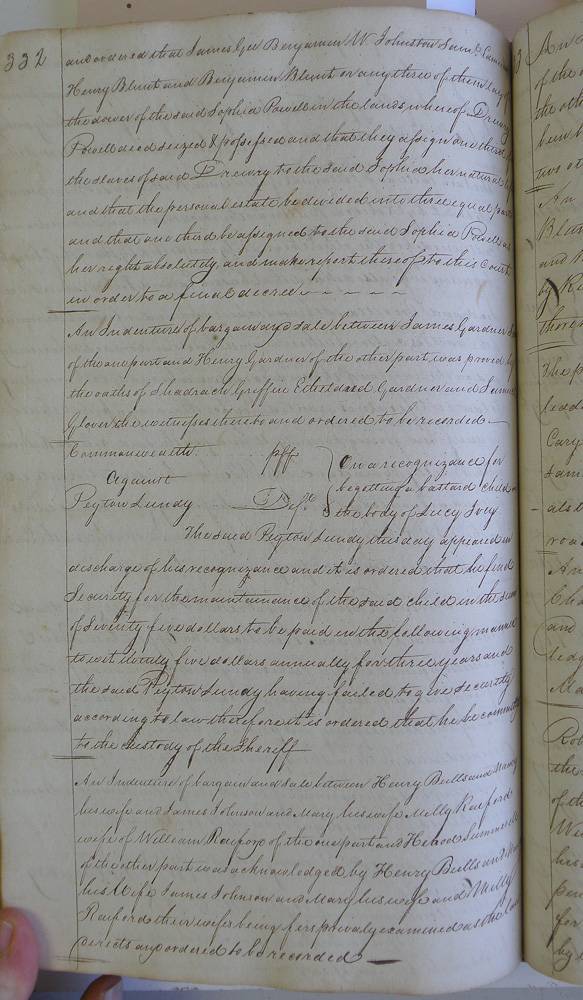 332
and ordered that James Gee Benjamin W. Johnston Saml.
Henry Blunt and Benjamin Blunt or any three of them lay off
the dower of the said Sophia Powell in the lands, whereof Drewry
Powell died seized & possessed and that they assign one third
the slaves of said Drewry to the said Sophia her natural
and that the personal estate be divided into three equal parts
and that one third be assigned to the said Sophia Powell as
her right absolutely, and make report thereof to this Court
in order to a final decree
An Indenture of bargain and sale between James Gardner
of the one part and Henry Gardner of the other part was proved by
the oaths of Shadrach Griffin Etheldred Gardner and
Glover the witnesses thereto and ordered to be recorded
Commonwealth plff
Against
Peyton Lundy Deft.
On a recognizance for
begetting a bastard child on
the body of Lucy Ivey
The said Peyton Lundy this day appeared in
discharge of his recognizance and it is ordered that he find
Security for the maintainance of the said child in the sum
of Seventy five dollars to be paid in the following manner
to wit twenty five dollars annually for three years and
the said Peyton Lundy having failed to give security
according to law therefore it is ordered that he be committed
to the custody of the Sheriff
An Indenture of bargain and sale between Henry Bulls and
his wife and James Johnson and Mary his wife Milly Raiford
wife of William Raiford of the one part and Herod
of the other part was acknowledged by Henry Bulls and
his Wife James Johnson and Mary his wife and Milly
Raiford their wifes being first privily examined as the law
directs and ordered to be recorded